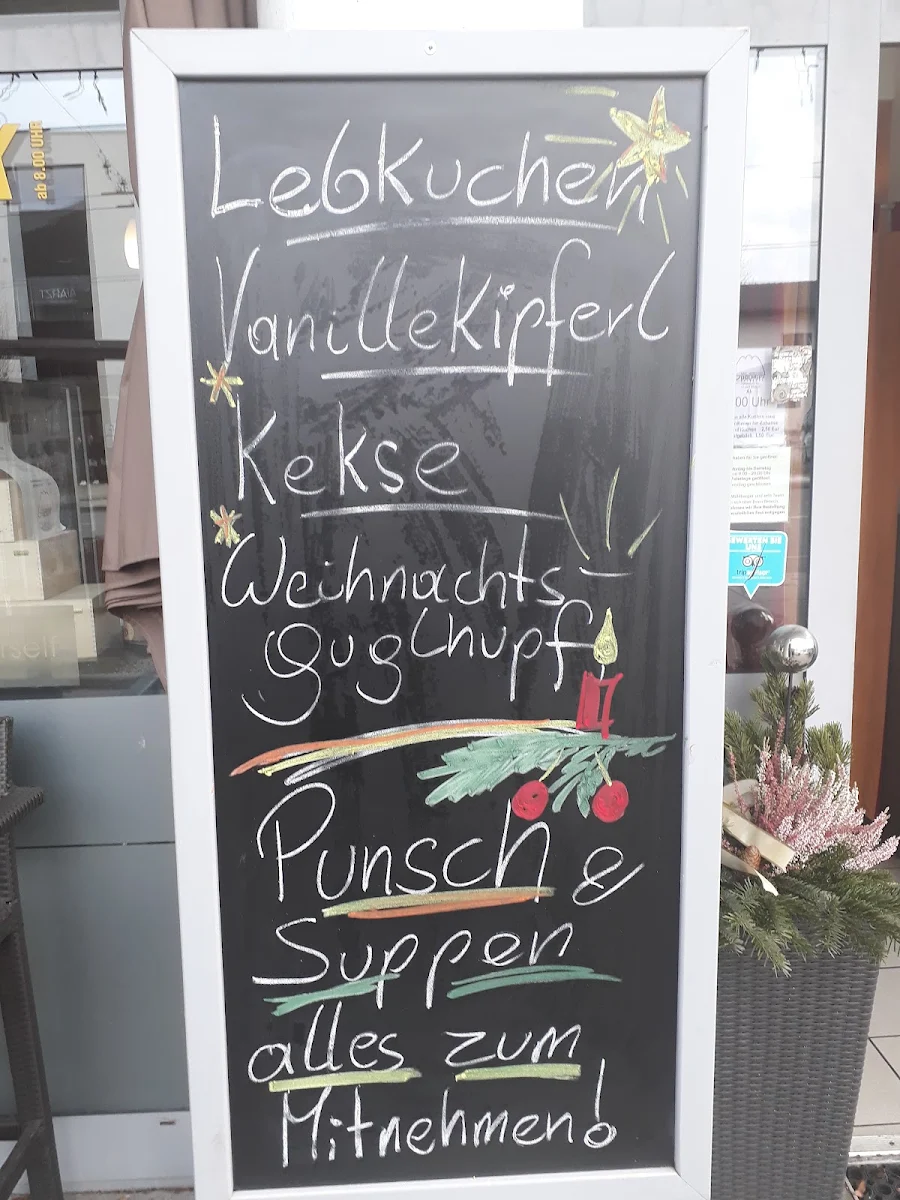 Lebkuchen
Vanillekipferl
Kekse
Weihnachts-
guglhupf
Punsch &
Suppen
alles zum
Mitnehmen!
ab 8.00 UHR
00 Uhr
BEWERTEN SIE
UNS